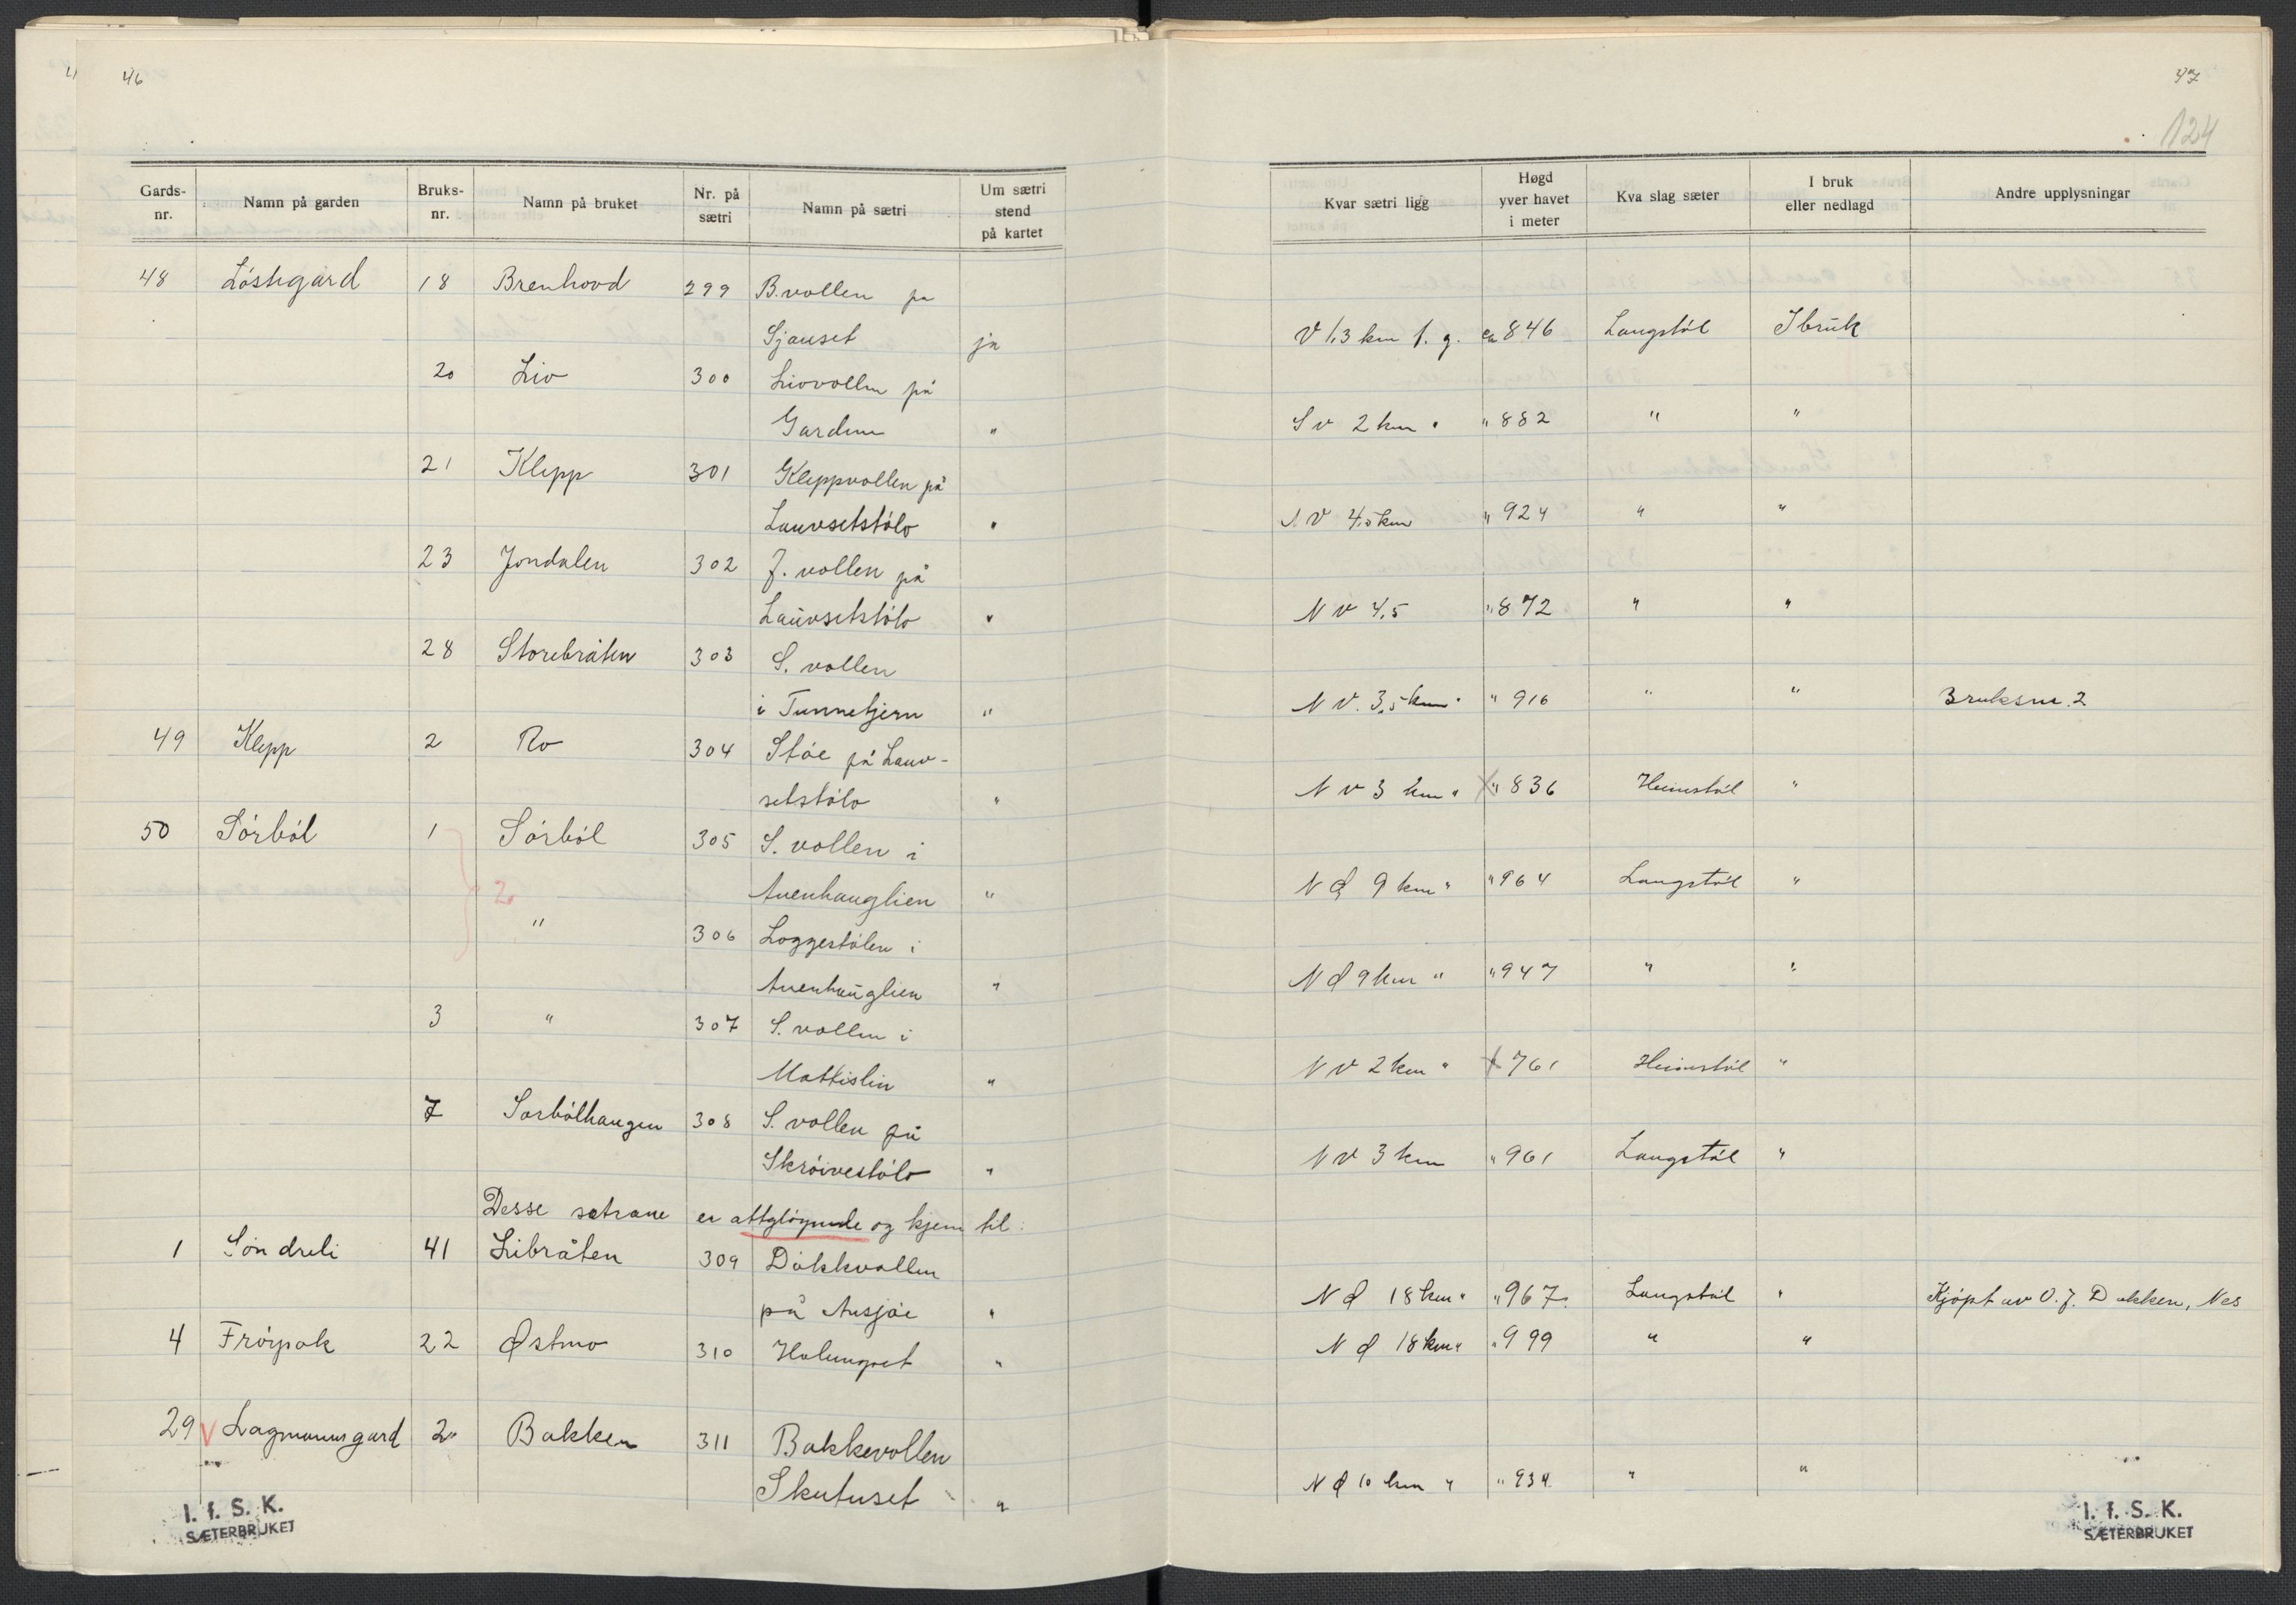 46
Gards-nr. Namn på garden Bruks-nr. Namn på bruket Nr. på sætri Namn på sætri Um sætri stend på kartet
48 Löstegård 18 Brenhovd 299 B.vollen på
Sjauset ja
20 Lio 300 Liovollen på
Gardnos "
21 Klepp 301 Kleppvollen på
Lauvsetstölo "
23 Jondalen 302 J. vollen på
Lauvsetstölo "
28 Storebråten 303 S. vollen
i Tunnetjern "
49 Klepp 2 Ro 304 Stöe på Lauv-
setstölo "
50 Sörböl 1 Sörböl 305 S. vollen i
2. Auenhauglien "
" 306 Loggestölen i
Auenhauglien "
3 " 307 S. vollen i
Mattislin "
7 Sorbölhaugen 308 S. vollen på
Skröivestölo "
Desse setrane er attglöymde og kjem til:
1 Söndreli 41 Libråten 309 Dökkvollen
på Ausjöe "
4 Fröysok 22 Østmo 310 Holmset "
29 V Lagmannsgard 2. Bakken 311 Bakkevollen
Skutuset "
I. f. S. K.
SÆTERBRUKET
47
124
Kvar sætri ligg Høgd yver havet i meter Kva slag sæter I bruk eller nedlagd Andre upplysningar
V 1,3 km f. g. ca 846 Langstöl I bruk
S v 2 km " " 882 " "
N V 4,0 km " 924 " "
N v 4,5 " 872 " "
N V. 3,5 km " " 916 " " Bruksnr. 2
N v 3 km " " 836 Heimstöl "
N Ø 9 km " " 964 Langstöl "
N Ø 9 km " " 947 " "
N V 2 km " " 761 Heimstöl "
N V 3 km " 961 Langstöl "
N Ø 18 km " " 967. Langstöl " Kjöpt av O. J. Dokken, Nes
N Ø 18 km " " 999 " "
N Ø 10 km " " 934 " "
I. f. S. K.
SÆTERBRUKET